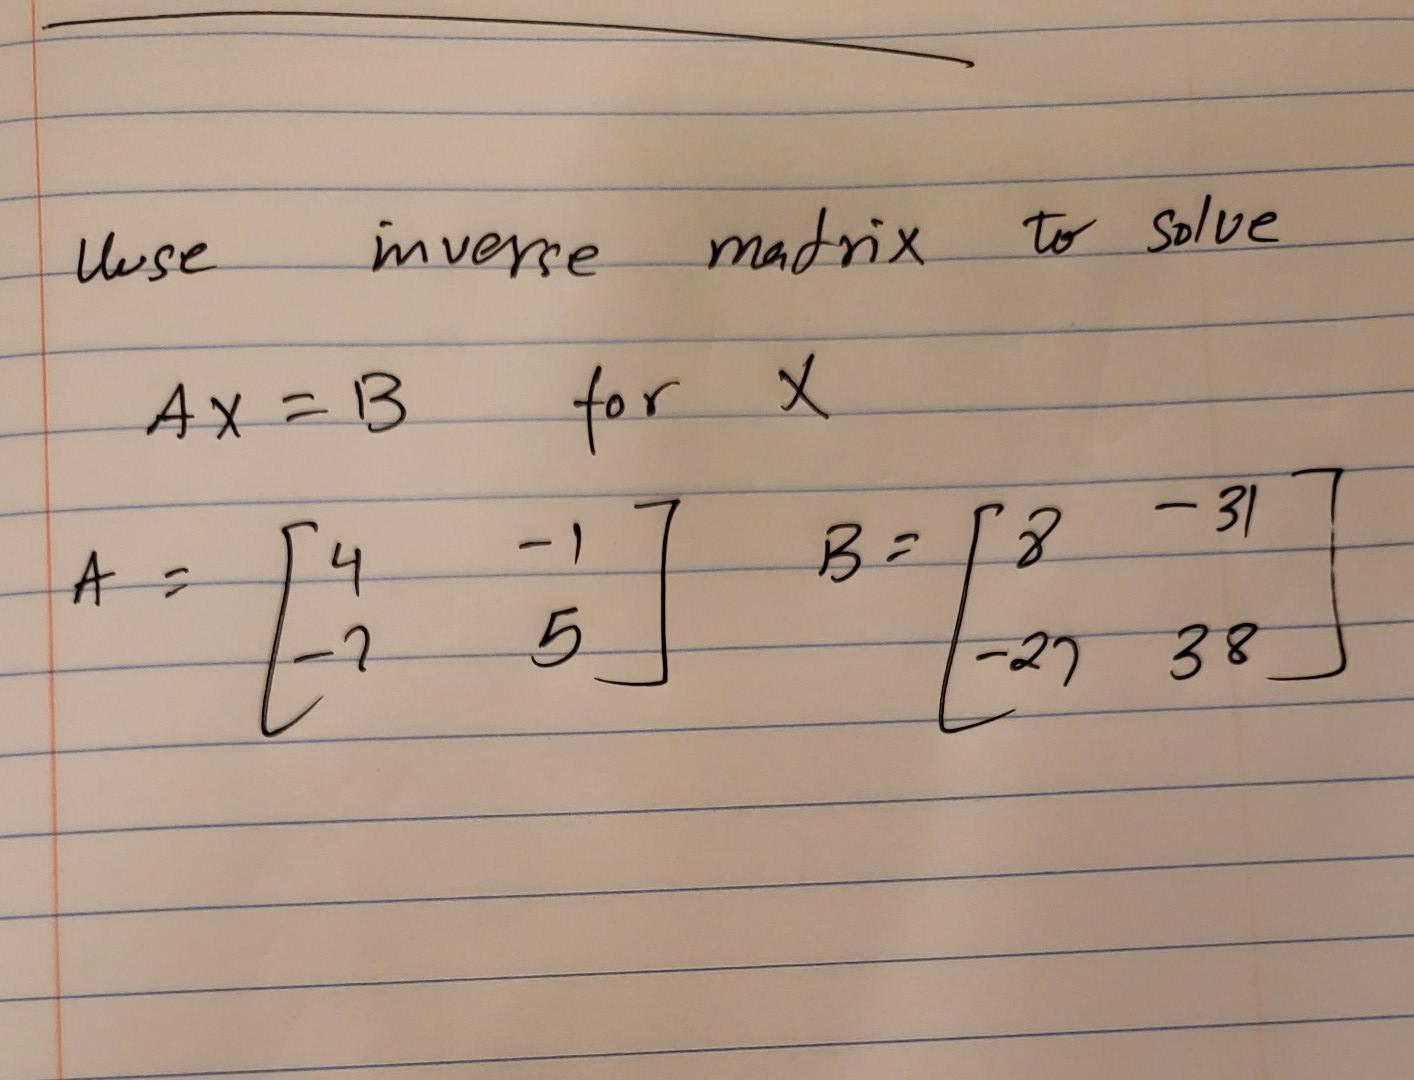 Uuse inverse matrix to solve
AX = B for X
A = [4 -1] B = [8 -31]
[-7 5] [-27 38]